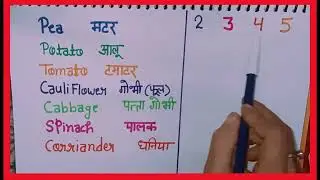 Pea मटर
Potato आलू
Tomato टमाटर
CauliFlower गोभी (फूल)
Cabbage पत्ता गोभी
Spinach पालक
Corriander धनिया
2 3 4 5